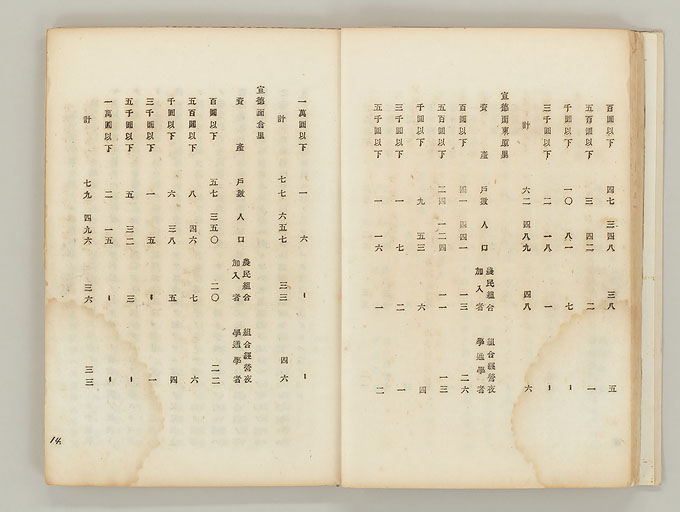 百圓以下 四七 三四八 三八 五
五百圓以下 三 四二 二 一
千圓以下 一〇 八一 七 〻
三千圓以下 二 一八 一 〻
計 六二 四八九 四八 六
宣德面東原里
資產 戶數 人口 農民組合加入者 組合經營夜學通學者
百圓以下 四一 四四一 一三 二六
五百圓以下 二四 一二四 一一 一三
千圓以下 九 五三 六 四
三千圓以下 一 七 二 一
五千圓以下 一 一六 一 二
一萬圓以下 一 六 〻 〻
計 七七 六五七 三三 四六
宣德面倉里
資產 戶數 人口 農民組合加入者 組合經營夜學通學者
百圓以下 五七 三五〇 二〇 二二
五百圓以下 八 四六 七 六
千圓以下 六 三八 五 四
三千圓以下 一 五 〻 一
五千圓以下 五 三二 三 〻
一萬圓以下 二 一五 一 〻
計 七九 四九六 三六 三三
14.